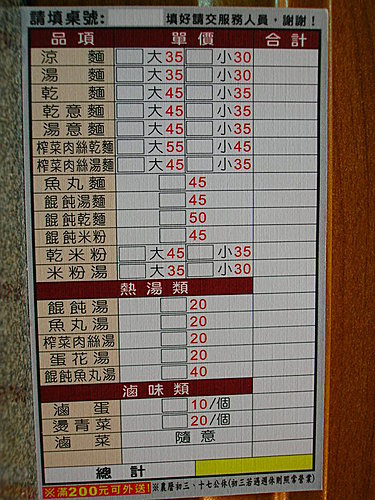 請填桌號: 填好請交服務人員，謝謝！
品項 單價 合計
涼麵 大35 小30
湯麵 大35 小30
乾麵 大45 小35
乾意麵 大45 小35
湯意麵 大45 小35
榨菜肉絲乾麵 大55 小45
榨菜肉絲湯麵 大45 小35
魚丸麵 45
餛飩湯麵 45
餛飩乾麵 50
餛飩米粉 45
乾米粉 大45 小35
米粉湯 大35 小30
熱湯類
餛飩湯 20
魚丸湯 20
榨菜肉絲湯 20
蛋花湯 20
餛飩魚丸湯 40
滷味類
滷蛋 10/個
燙青菜 20/個
滷菜 隨意
總計
※滿200元可外送！※農曆初三、十七公休(初三若遇週休則照常營業)